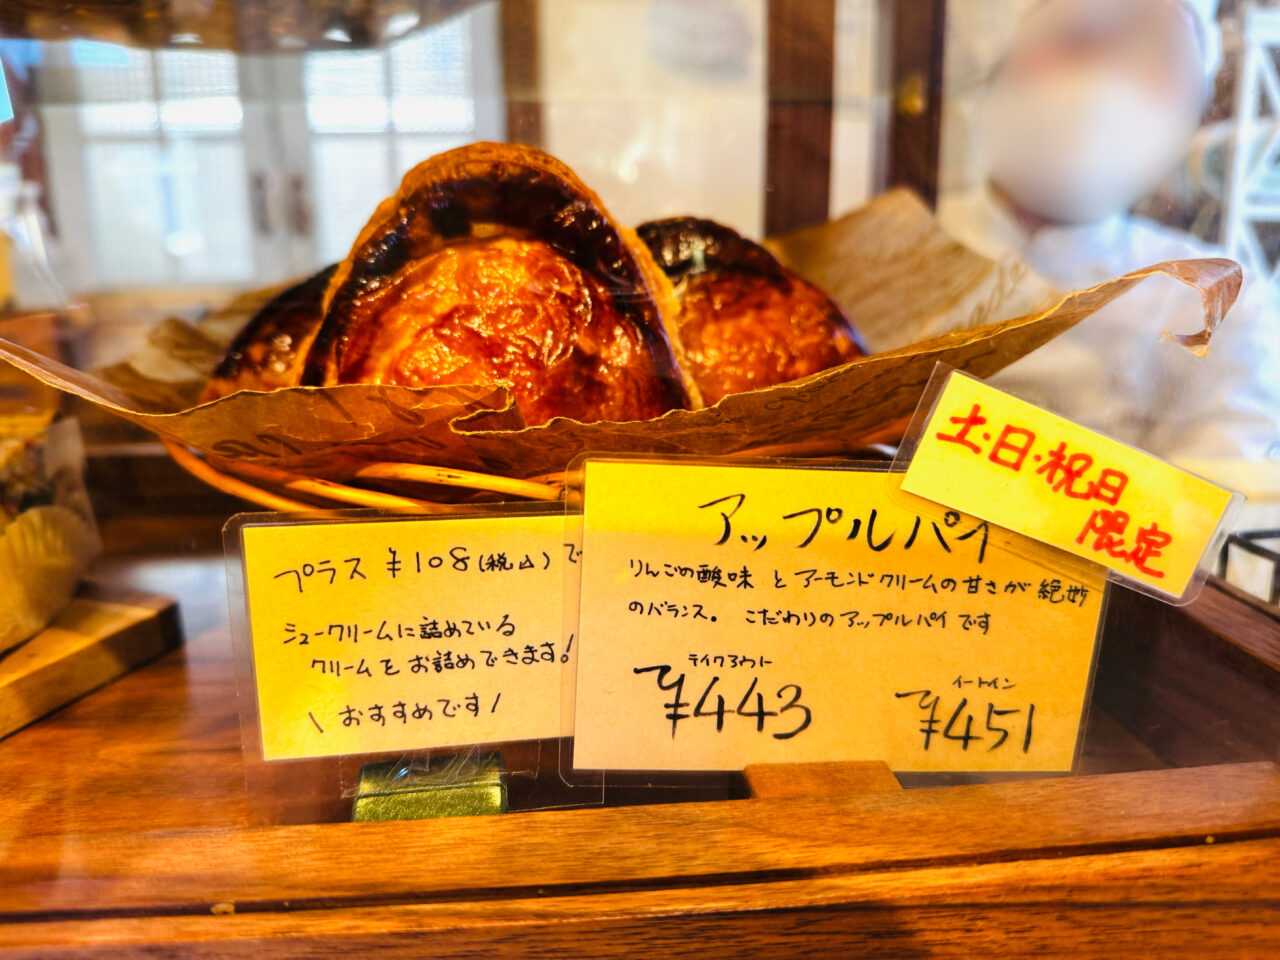 土・日・祝日
限定
アップルパイ
りんごの酸味とアーモンドクリームの甘さが絶妙
のバランス。こだわりのアップルパイです
テイクアウト
¥443
イートイン
¥451
プラス¥108(税込)で
シュークリームに詰めている
クリームをお詰めできます!
\おすすめです/